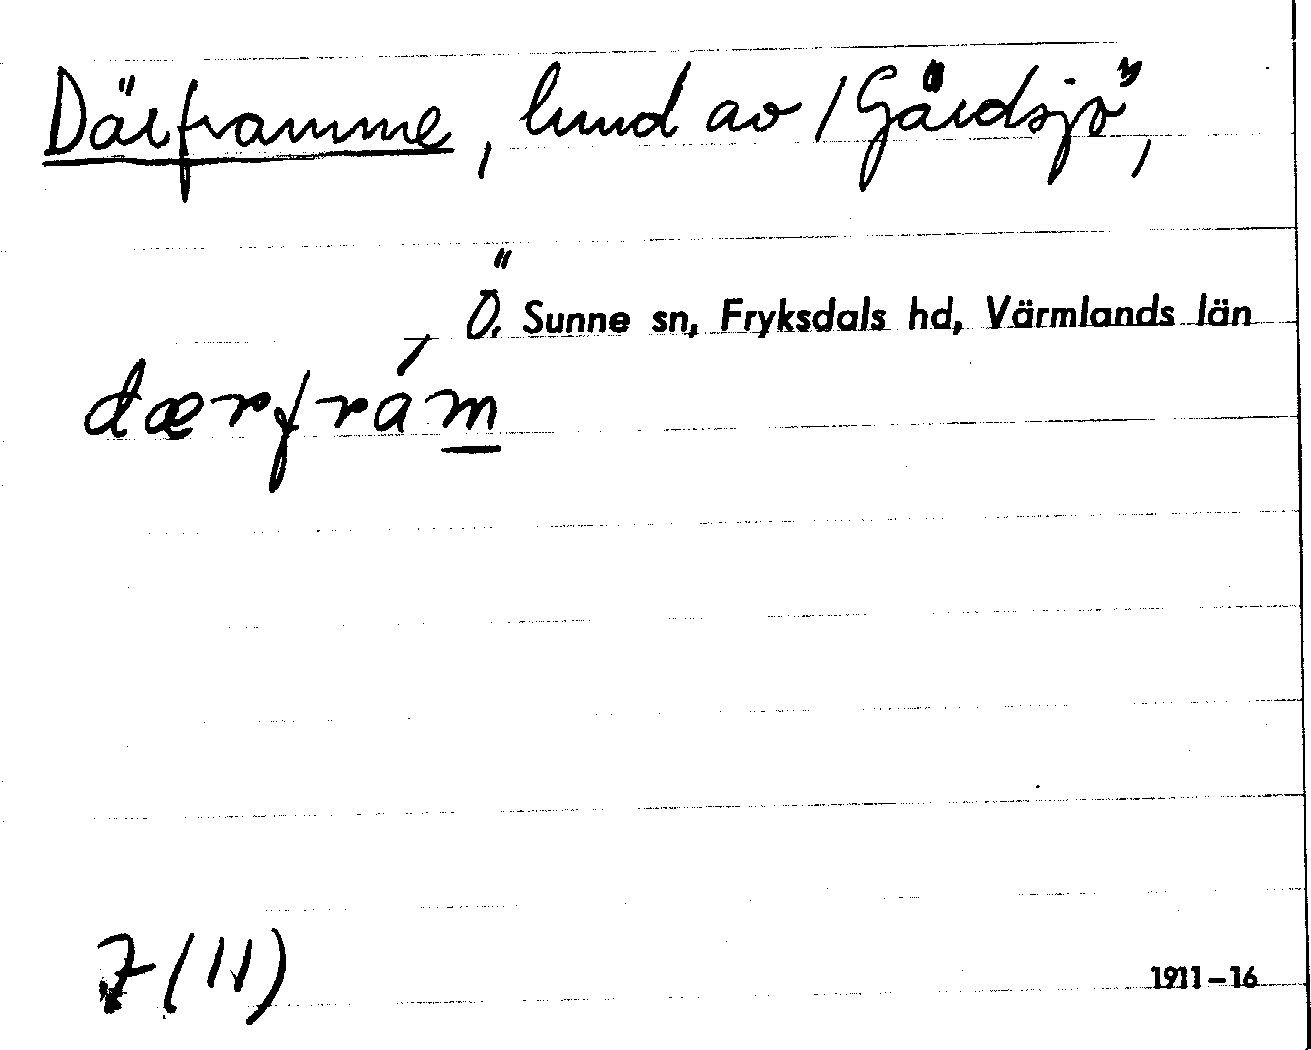 Därframme, lund av / Gårdsjö,
Ö. Sunne sn, Fryksdals hd, Värmlands län
dærfram
7 (11)
1911–16